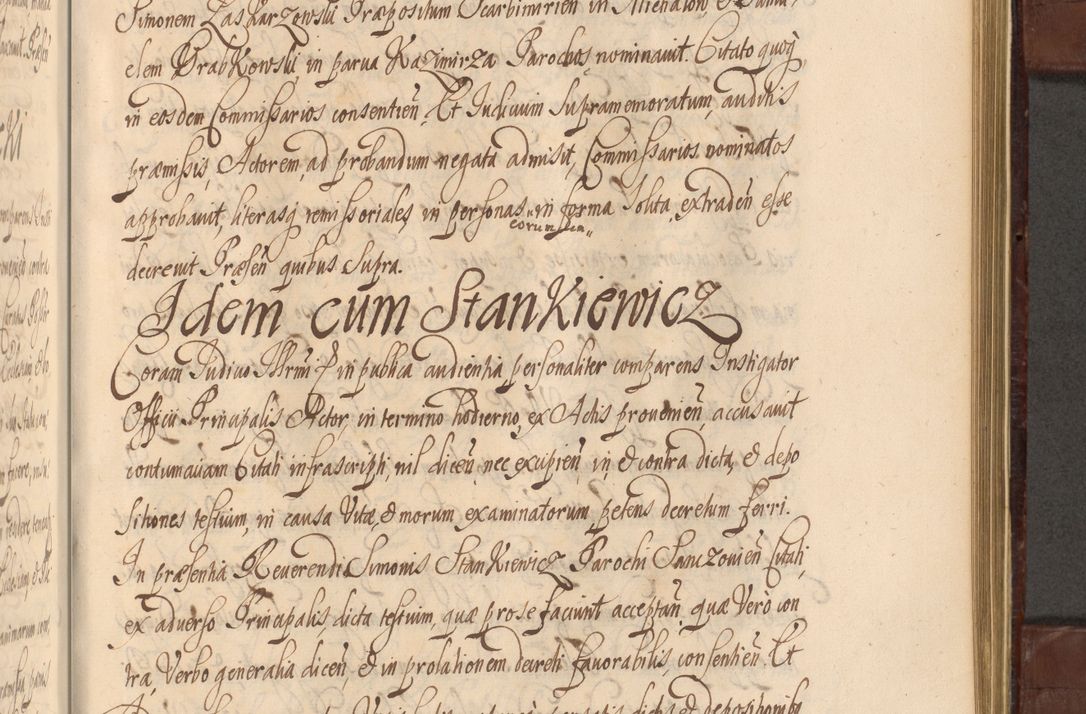 Simonem Zaskarzowski Præpositum Scarbimirien in Michalow, & Dani„
elem Drabkowski, in parva Kazimirza Parochos, nominavit. Citato quoq;
in eosdem Commissarios consentien, Et Iudicium Supramemoratum, auditis
præmissis, Actorem, ad probandum negata admisit, Commissarios nominatos
approbavit, literasq; remissoriales, in personas eorundem„ in forma solita, extraden esse
decrevit Præsen quibus supra.
Idem cum Stankiewicz
Coram Iudicio Illrmi & in publica audientia personaliter comparens Instigator
Officii Principalis Actor, in termino hodierno, ex Actis provenien, accusavit
contumaciam Citati infrascripti, nil dicen, nec excipien, in, & contra dicta, & depo
sitiones testium, in causa Vitæ, & morum, examinatorum, petens decretum ferri.
In præsentia Reverendi Simonis Stankiewicz Parochi Sanczovien Citati,
ex adverso Principalis, dicta testium, quæ pro se faciunt acceptan, quæ Vero con
tra, Verbo generalia dicen, & in prolationem decreti favorabilis, consentien. Et